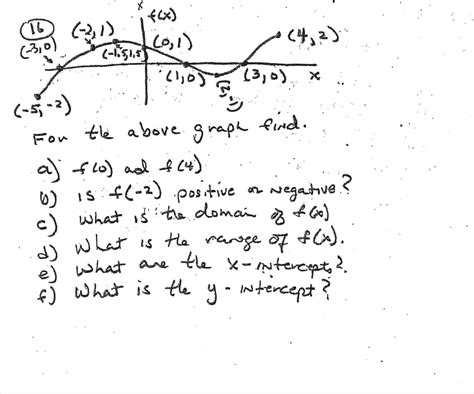 16
f(x)
(-2,1)
(4,2)
(-3,0)
(0,1)
(-1.5,1.5)
(1,0)
(3,0)
x
(-5,-2)
For the above graph find.
a) f(0) ad f(4)
b) is f(-2) positive or negative?
c) What is the domain of f(x)
d) What is the range of f(x).
e) What are the x-intercepts?
f) What is the y-intercept?